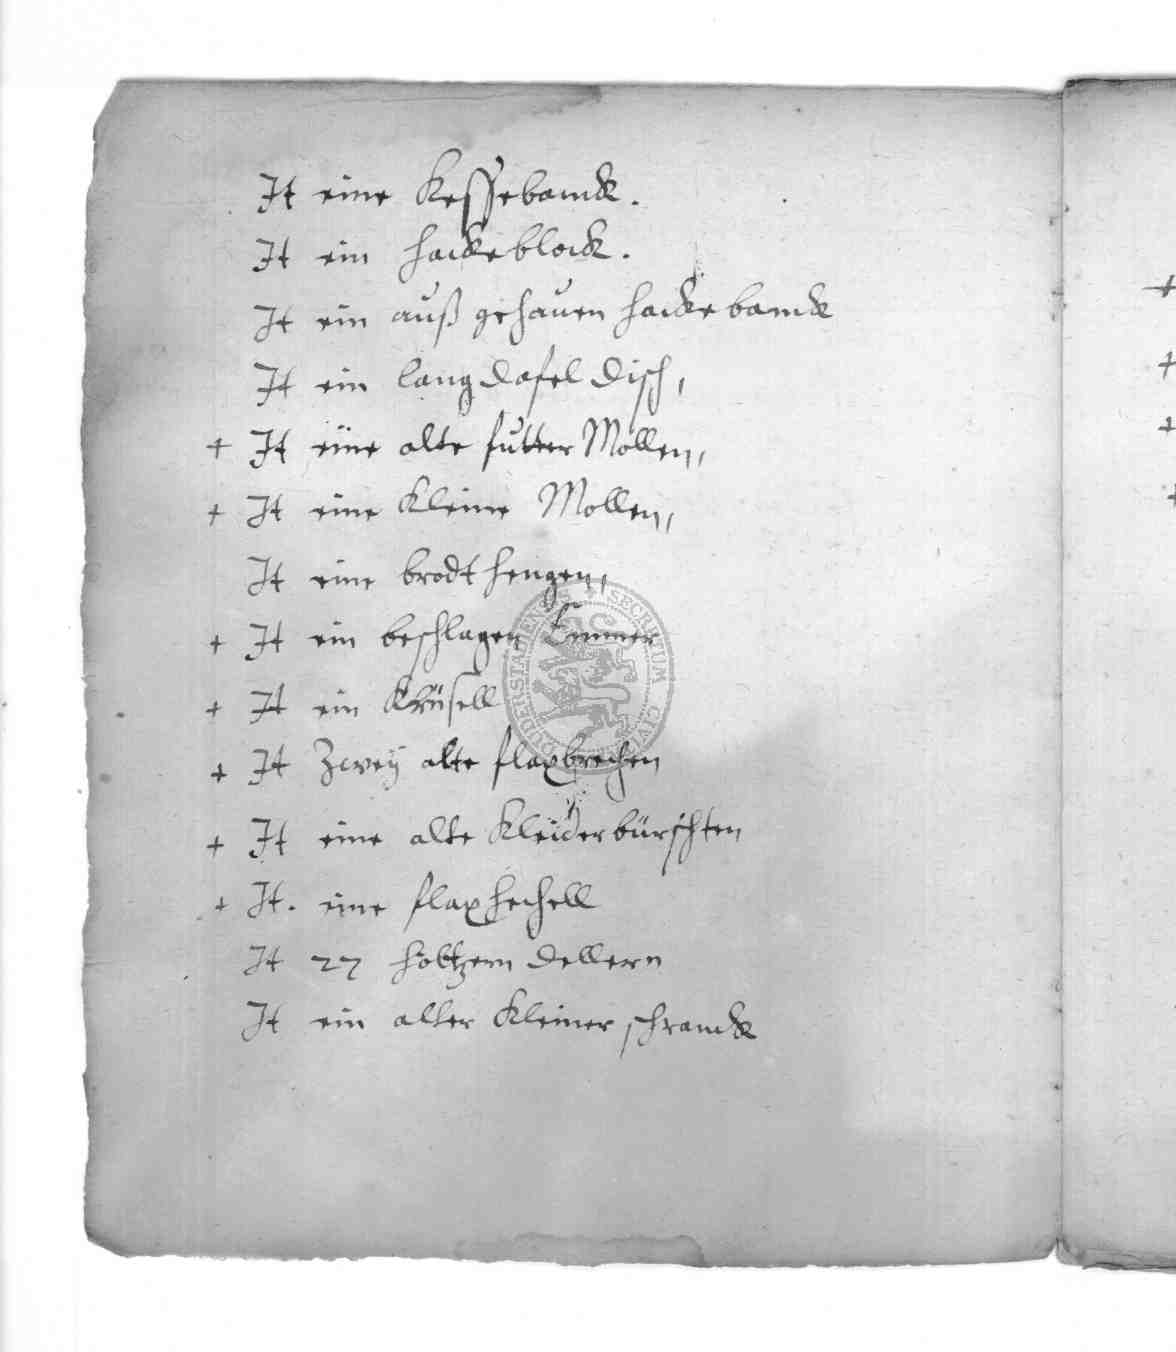 It eine Kessebanck.
It ein hackeblock.
It ein auß gehauen hackebanck
It ein lang dafel disch,
+ It eine alte futter Mollen,
+ It eine Kleine Mollen,
It eine brodt hengen,
+ It ein beschlagen Emmer
+ It ein Krüsell
+ It Zweÿ alte flaxbrechen
+ It eine alte Kleider bürschten
+ It. eine flaxhechell
It 27 höltzern dellern
It ein alter Kleiner schranck
SECRETUM CIVITATIS DUDERSTADIENSIS
+
+
+
+